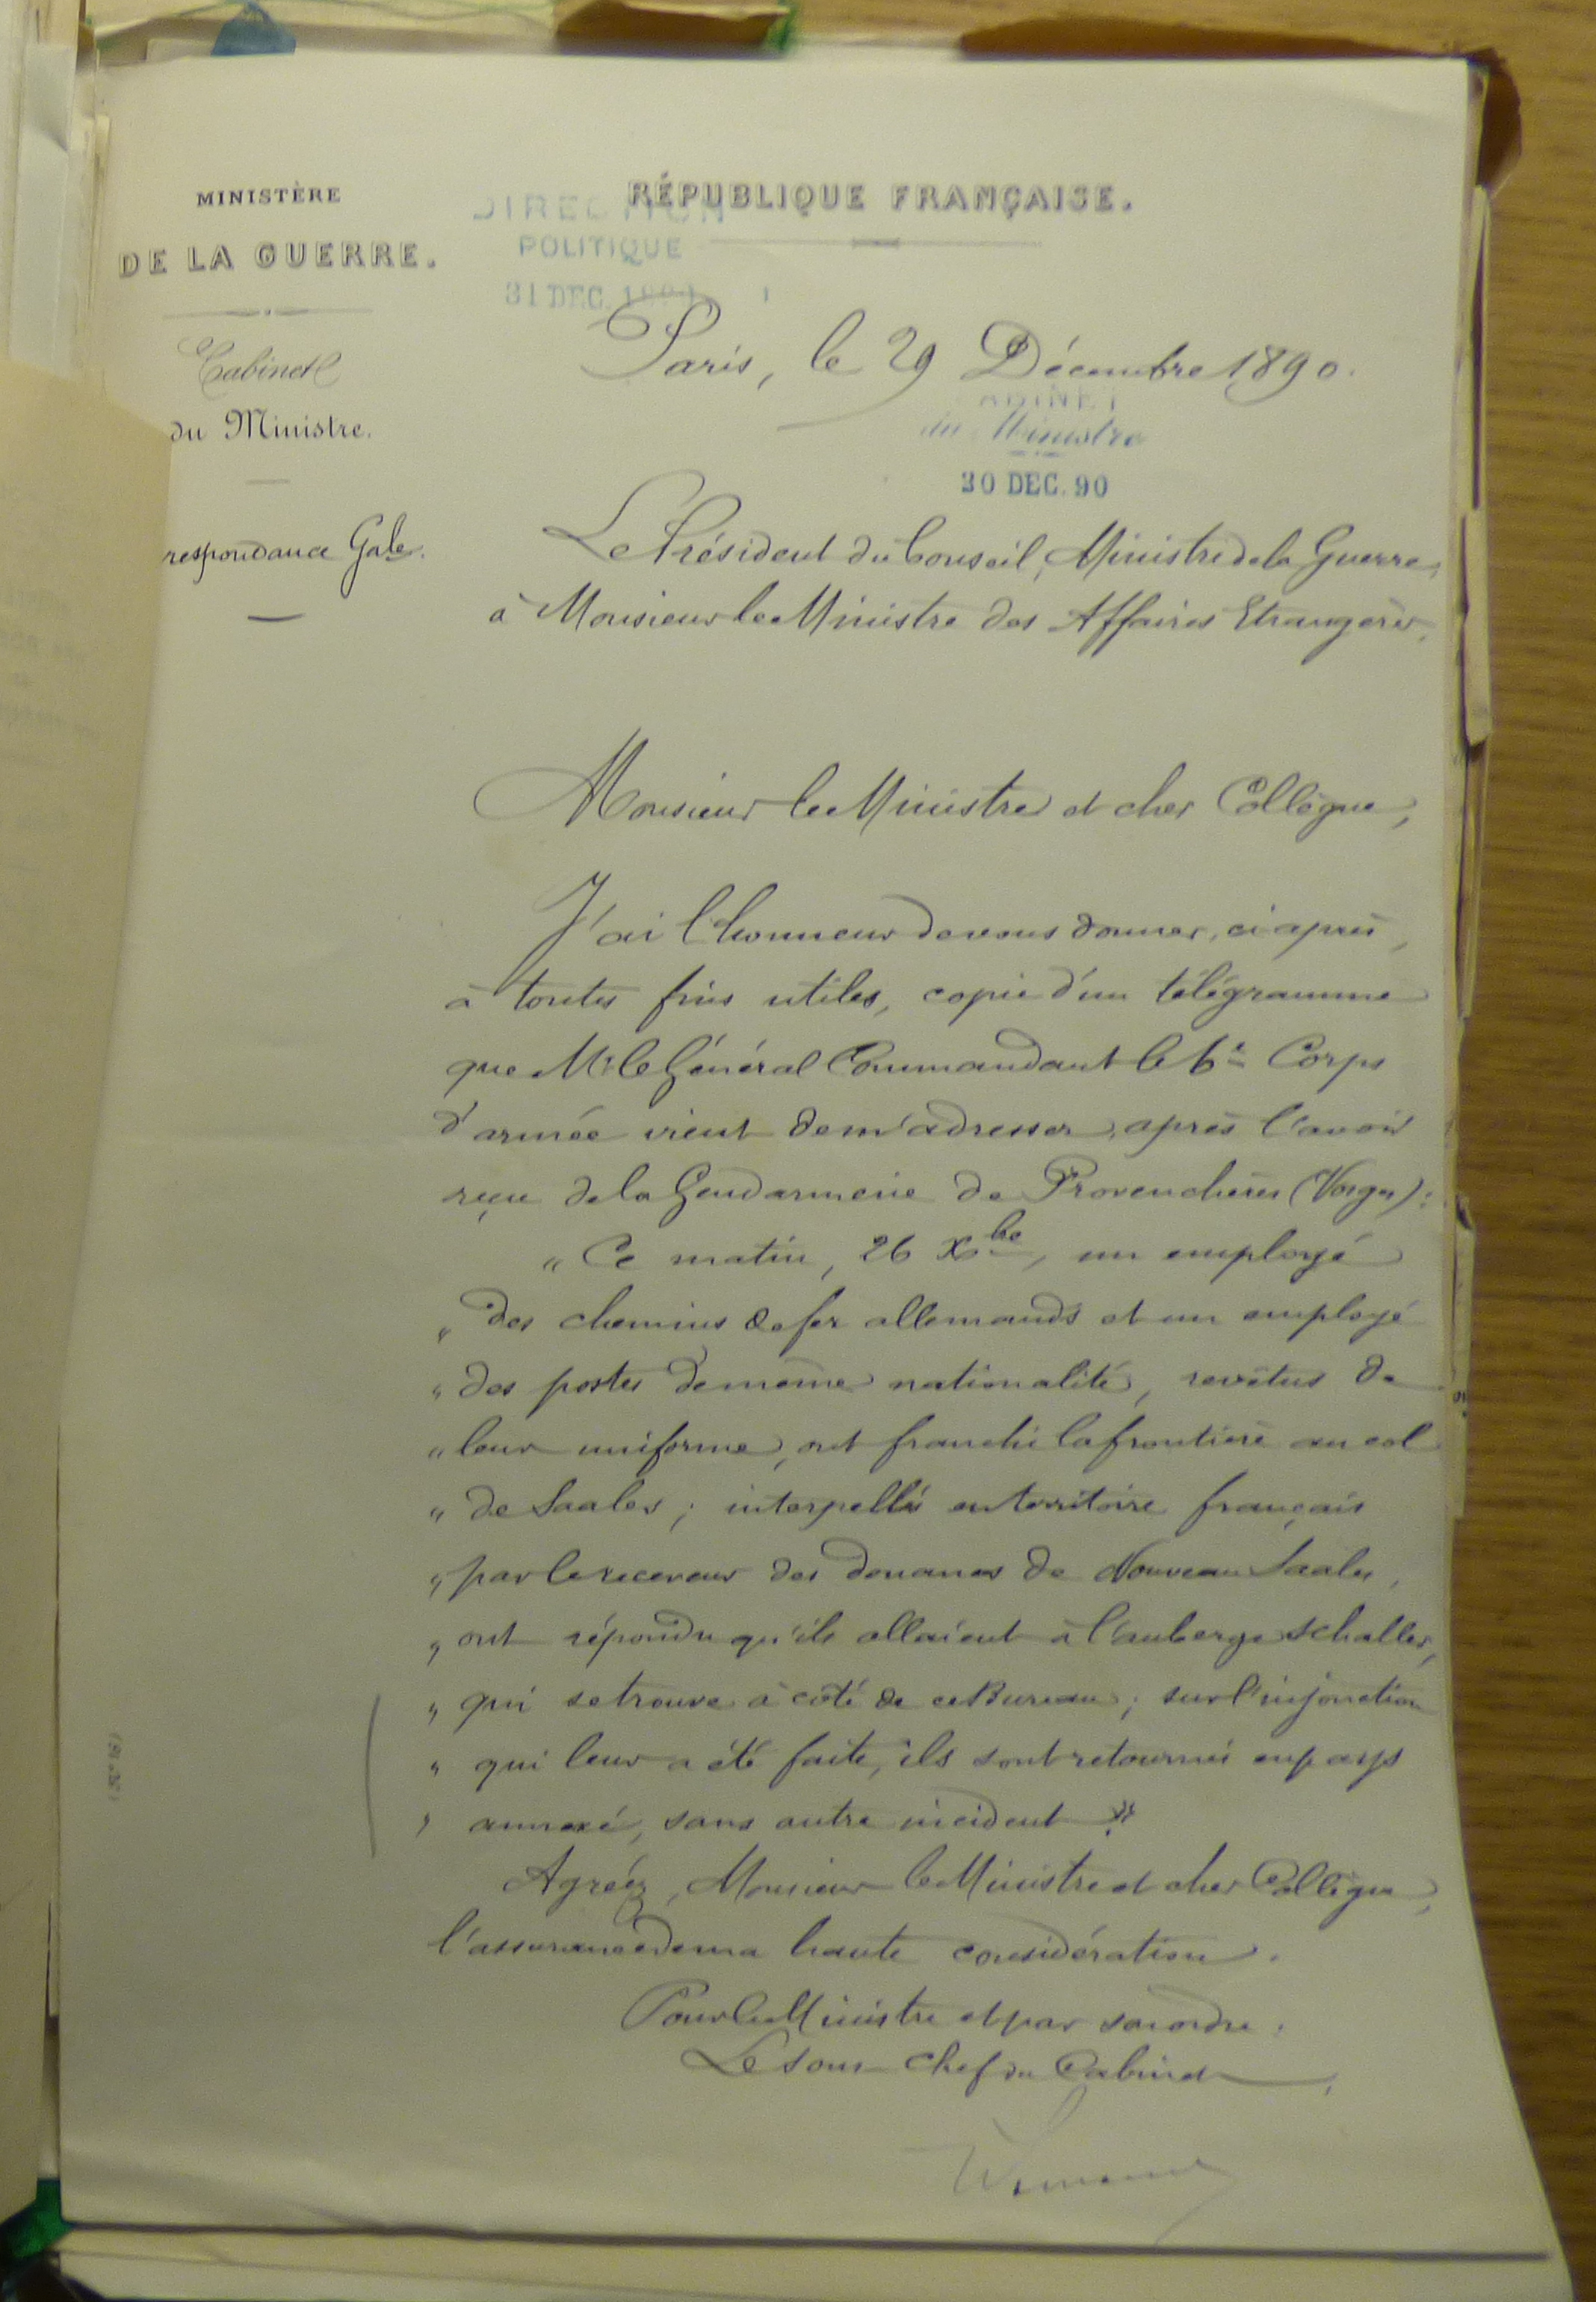 MINISTÈRE
DE LA GUERRE.
Cabinet
du Ministre.
respondance Gale.
RÉPUBLIQUE FRANÇAISE.
DIRECTION
POLITIQUE
31 DEC.
Paris, le 29 Décembre 1890.
ABINET
du Ministre
30 DEC. 90
Le Président du Conseil, Ministre de la Guerre,
à Monsieur le Ministre des Affaires Etrangères,
Monsieur le Ministre et cher Collègue,
J'ai l'honneur de vous donner, ci après,
à toutes fins utiles, copie d'un télégramme
que Mr le Général Commandant le 6e Corps
d'armée vient de m'adresser, après l'avoir
reçu de la Gendarmerie de Provenchères (Vosges) :
" Ce matin, 26 Xbre, un employé
" des chemins de fer allemands et un employé
" des postes de même nationalité, revêtus de
" leur uniforme, ont franchi la frontière au col
" de Saales ; interpellés en territoire français
" par le receveur des douanes de Nouveau Saales,
" ont répondu qu'ils allaient à l'auberge Schaller,
" qui se trouve à côté de ce Bureau ; sur l'injonction
" qui leur a été faite, ils sont retournés en pays
" annexé, sans autre incident ."
Agréez, Monsieur le Ministre et cher Collègue,
l'assurance de ma haute considération.
Pour le Ministre et par son ordre :
Le Sous-Chef du Cabinet,